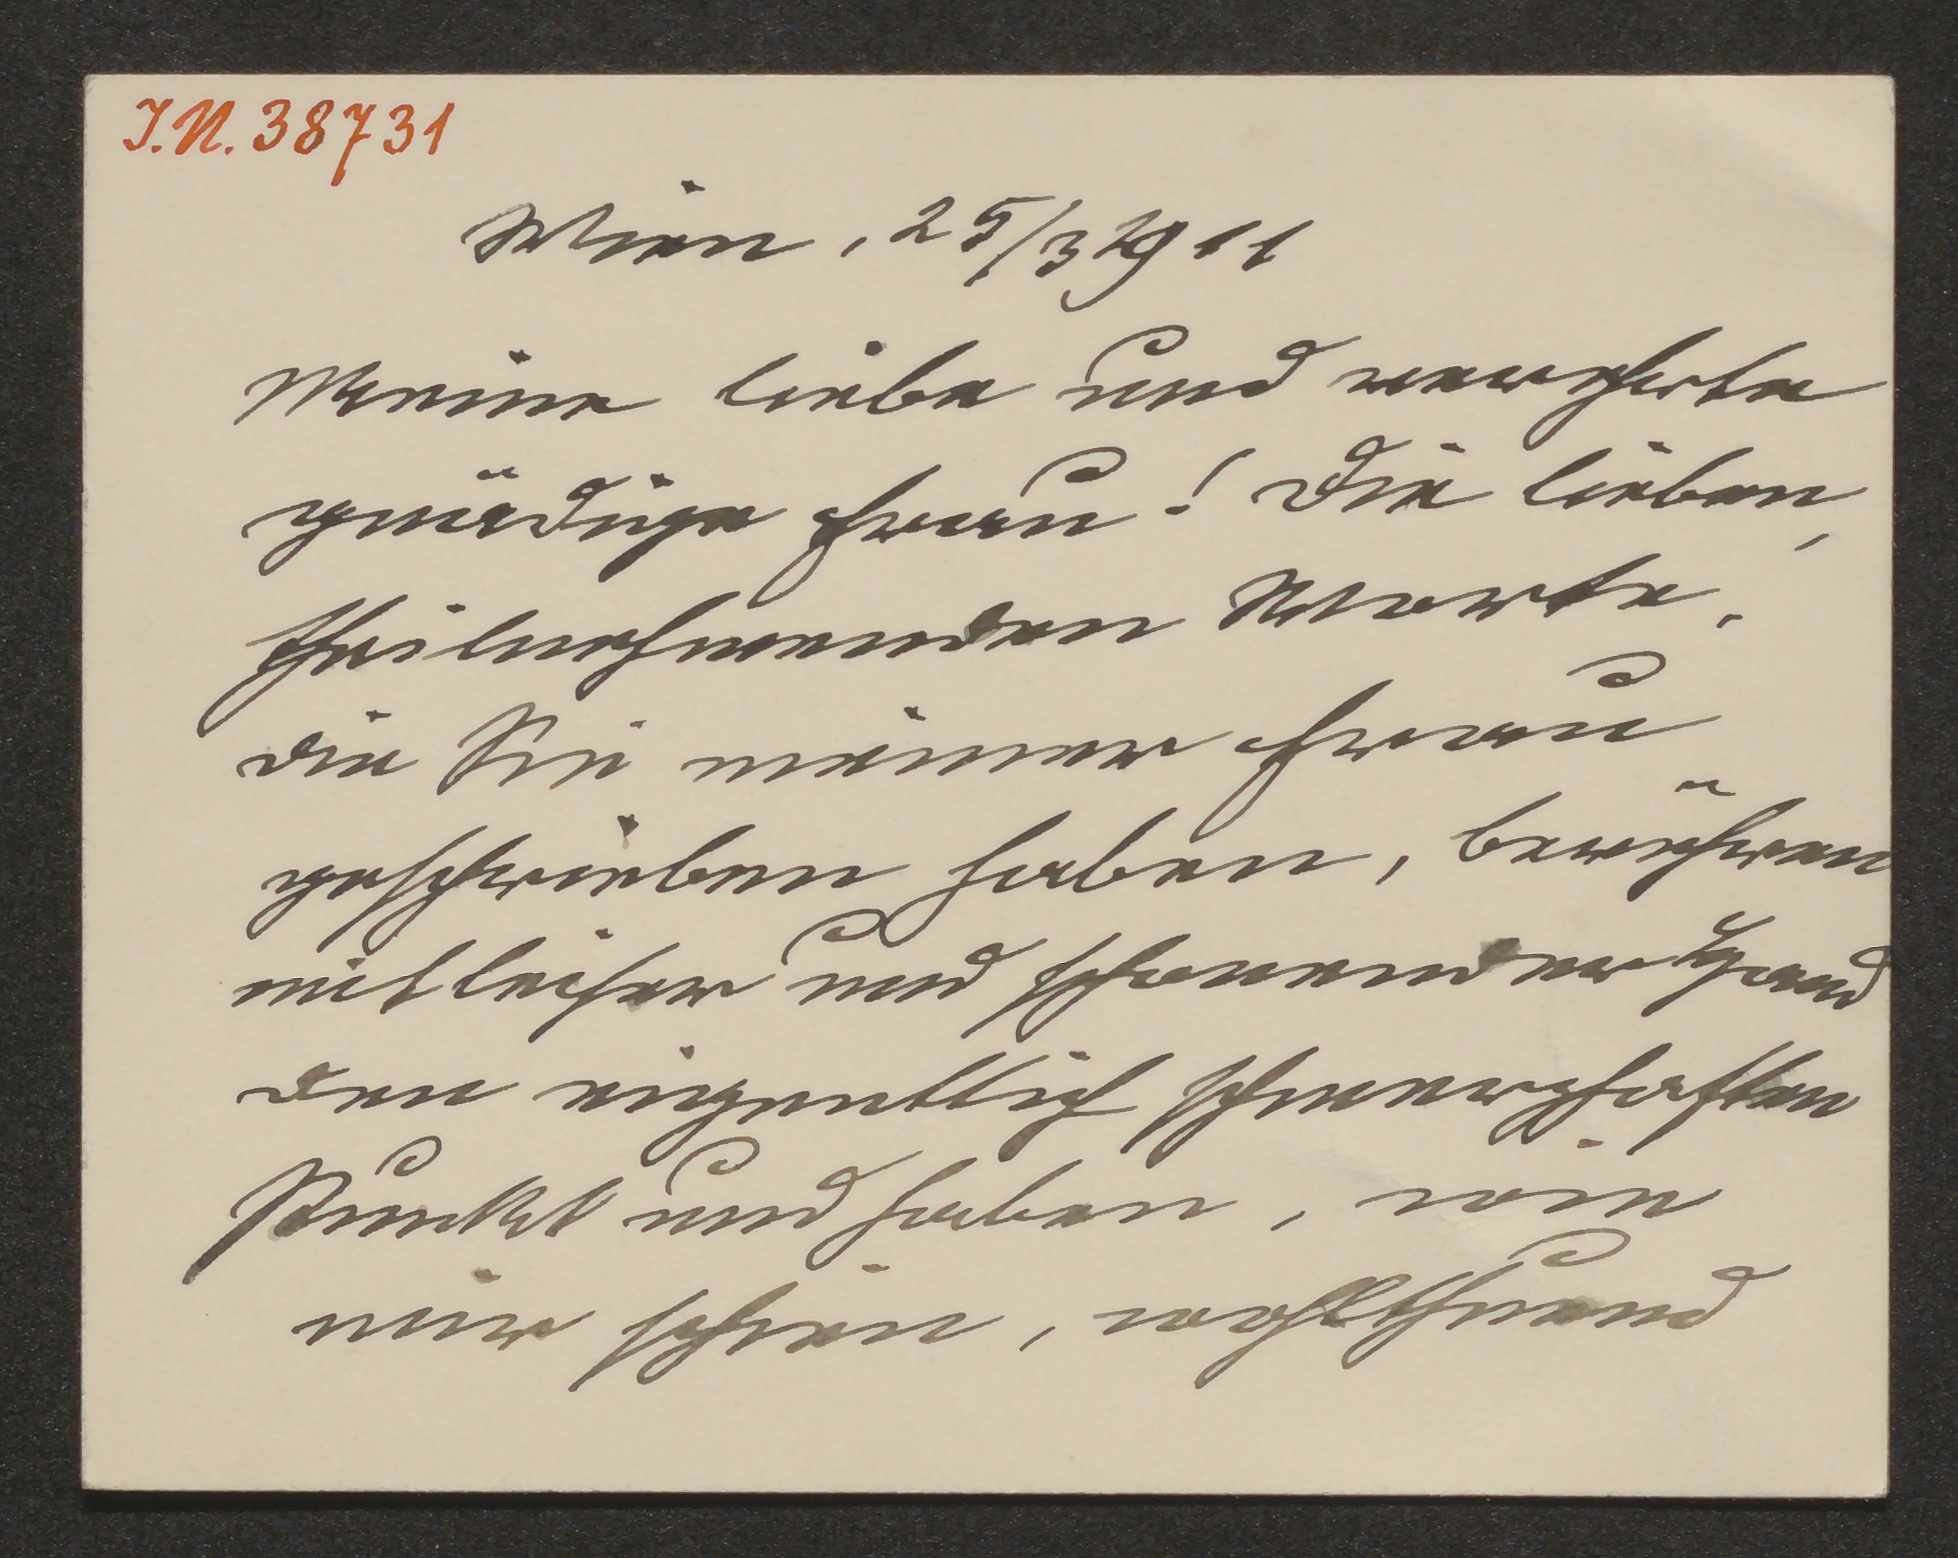 J.N. 38731
Wien, 25/3 1911
Meine liebe und verehrte
gnädige Frau! Die lieben,
theilnehmenden Worte,
die Sie meiner Frau
geschrieben haben, berühren
mit leiser und schonender Hand
den eigentlich schmerzhaften
Punkt und haben, wie
mir schien, wohlthuend